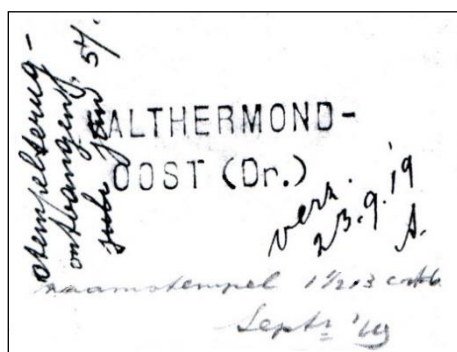 stempel terug-
ontvangen
jan 54.
VALTHERMOND-
OOST (Dr.)
verz.
23.9.'19
A.
naamstempel
Septr '19